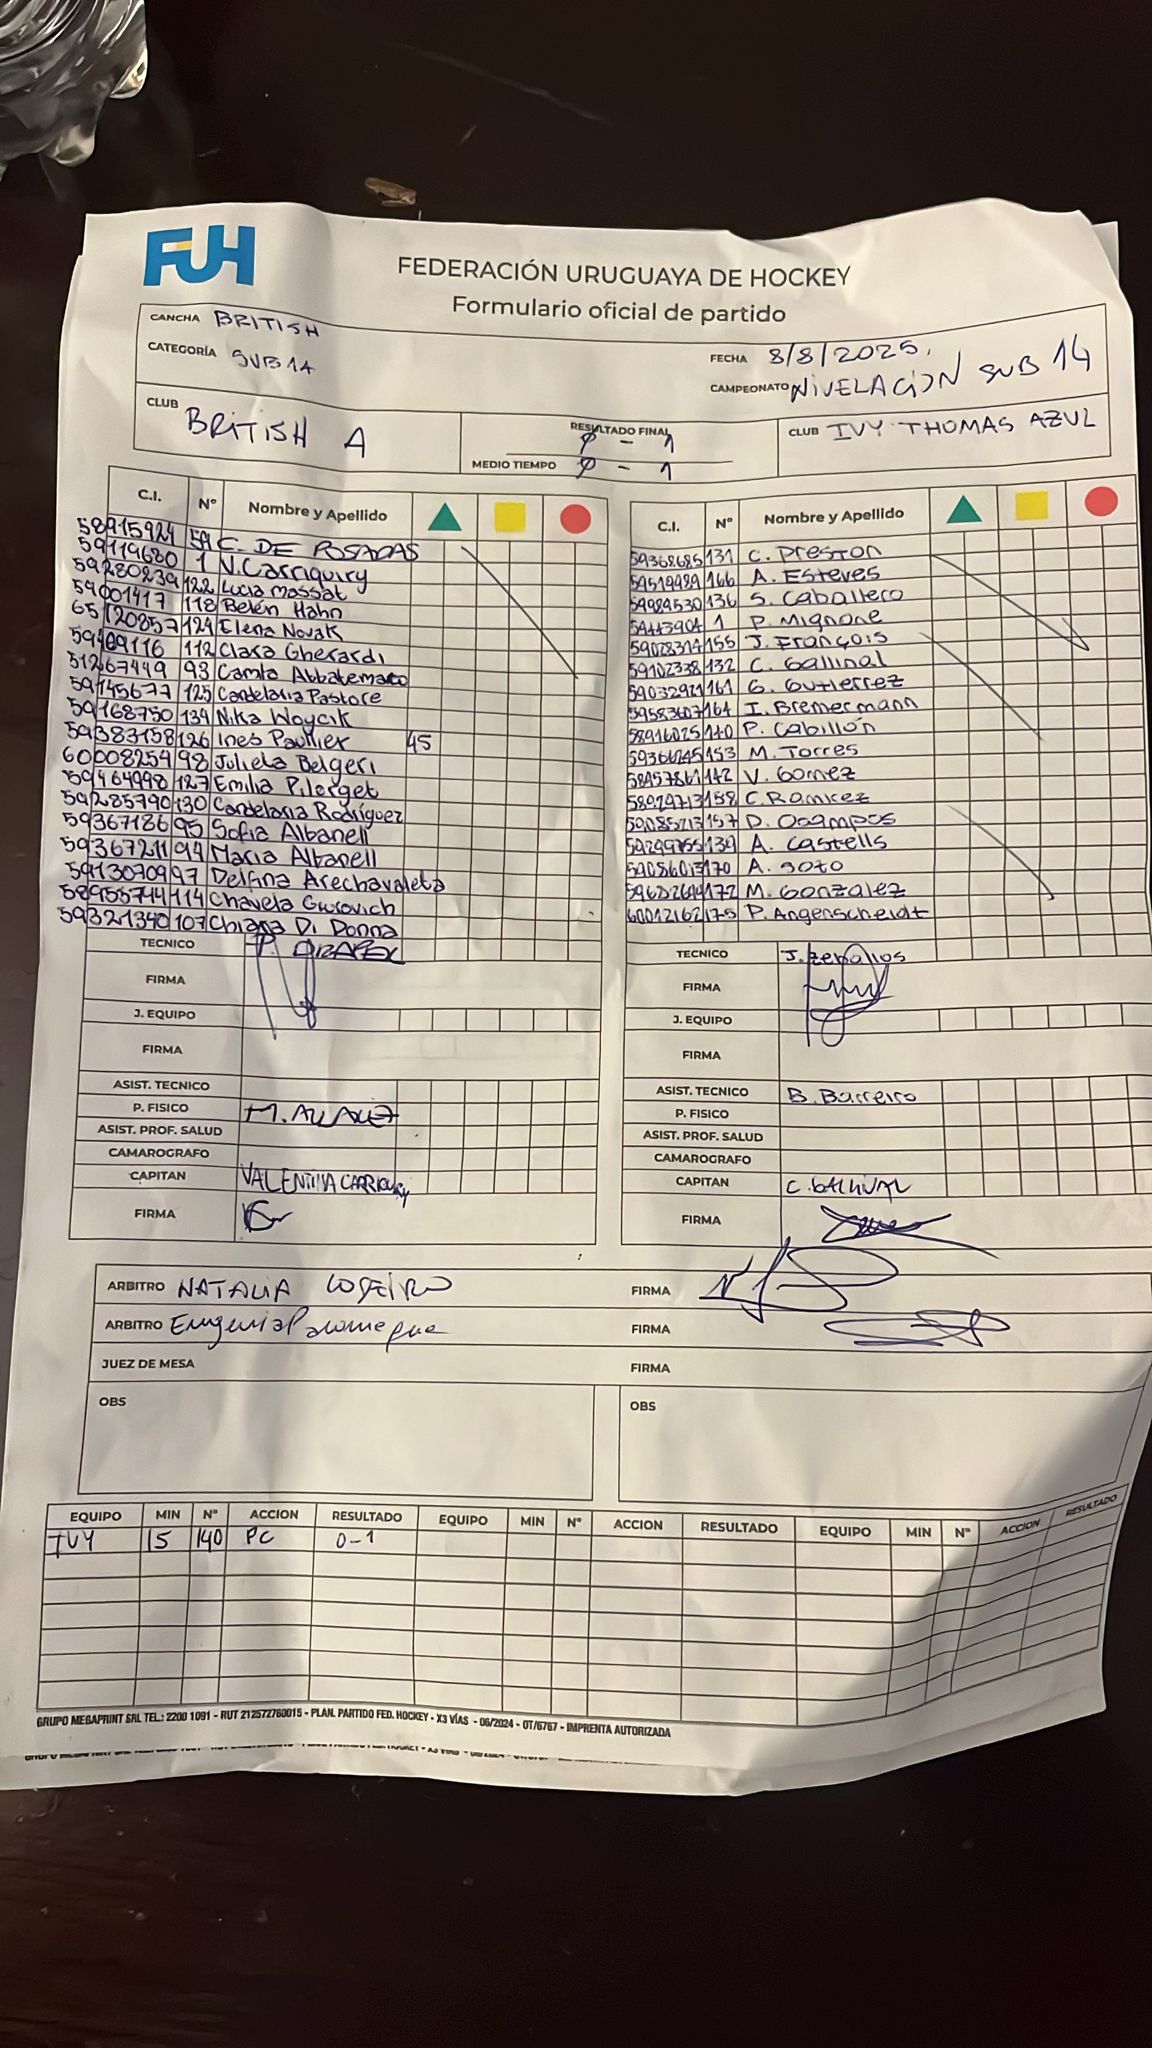 FUH
FEDERACIÓN URUGUAYA DE HOCKEY
Formulario oficial de partido
CANCHA BRITISH
CATEGORÍA SUB 14
FECHA 8/8/2025.
CAMPEONATO NIVELACIÓN SUB 14
CLUB BRITISH A
RESULTADO FINAL 0 - 1
MEDIO TIEMPO 0 - 1
CLUB IVY THOMAS AZUL
C.I. Nº Nombre y Apellido
58915924 59 C. DE POSADAS
59119680 1 V. Carriquiry
59280239 122 Lucia Massat
59001417 118 Belén Hahn
65120857 124 Elena Novak
59409116 112 Clara Gherardi
51267449 93 Camila Abbatemarco
59145677 125 Candelaria Pastore
59168750 134 Nika Woycik
59383158 126 Ines Paullier 45
60008254 98 Julieta Belgeri
59464998 127 Emilia Pilorget
59285790 130 Candelaria Rodríguez
59367186 95 Sofia Albanell
59367211 94 Maria Albanell
59130709 97 Delfina Arechavaleta
58955744 114 Chavela Gurovich
59321340 107 Chiara Di Donna
TECNICO
FIRMA
J. EQUIPO
FIRMA
ASIST. TECNICO
P. FISICO
ASIST. PROF. SALUD
CAMAROGRAFO
CAPITAN VALENTINA CARRIQUIRY
FIRMA
C.I. Nº Nombre y Apellido
59368685 131 C. Preston
59519989 166 A. Esteves
59984530 136 S. Caballero
59443904 1 P. Mignone
59028314 155 J. François
59102338 132 C. Gallinal
59032921 161 G. Gutierrez
59583607 164 I. Bremermann
58916025 140 P. Cabillón
59366245 153 M. Torres
58957861 142 V. Gomez
58029713 158 C. Ramirez
59085213 157 D. Ocampos
59299755 139 A. Castells
59086013 170 A. Soto
59682614 172 M. Gonzalez
60012162 175 P. Angenscheidt
TECNICO J. Zeballos
FIRMA
J. EQUIPO
FIRMA
ASIST. TECNICO B. Barreiro
P. FISICO
ASIST. PROF. SALUD
CAMAROGRAFO
CAPITAN C. GALLINAL
FIRMA
ARBITRO NATALIA LOSEIRO FIRMA
ARBITRO Eugenia FIRMA
JUEZ DE MESA FIRMA
OBS
OBS
EQUIPO MIN Nº ACCION RESULTADO EQUIPO MIN Nº ACCION RESULTADO EQUIPO MIN Nº ACCION RESULTADO
IVY 15 140 PC 0-1
GRUPO MEGAPRINT SRL TEL.: 2200 1091 - RUT 212572760015 - PLAN. PARTIDO FED. HOCKEY - X3 VÍAS - 06/2024 - OT/6767 - IMPRENTA AUTORIZADA